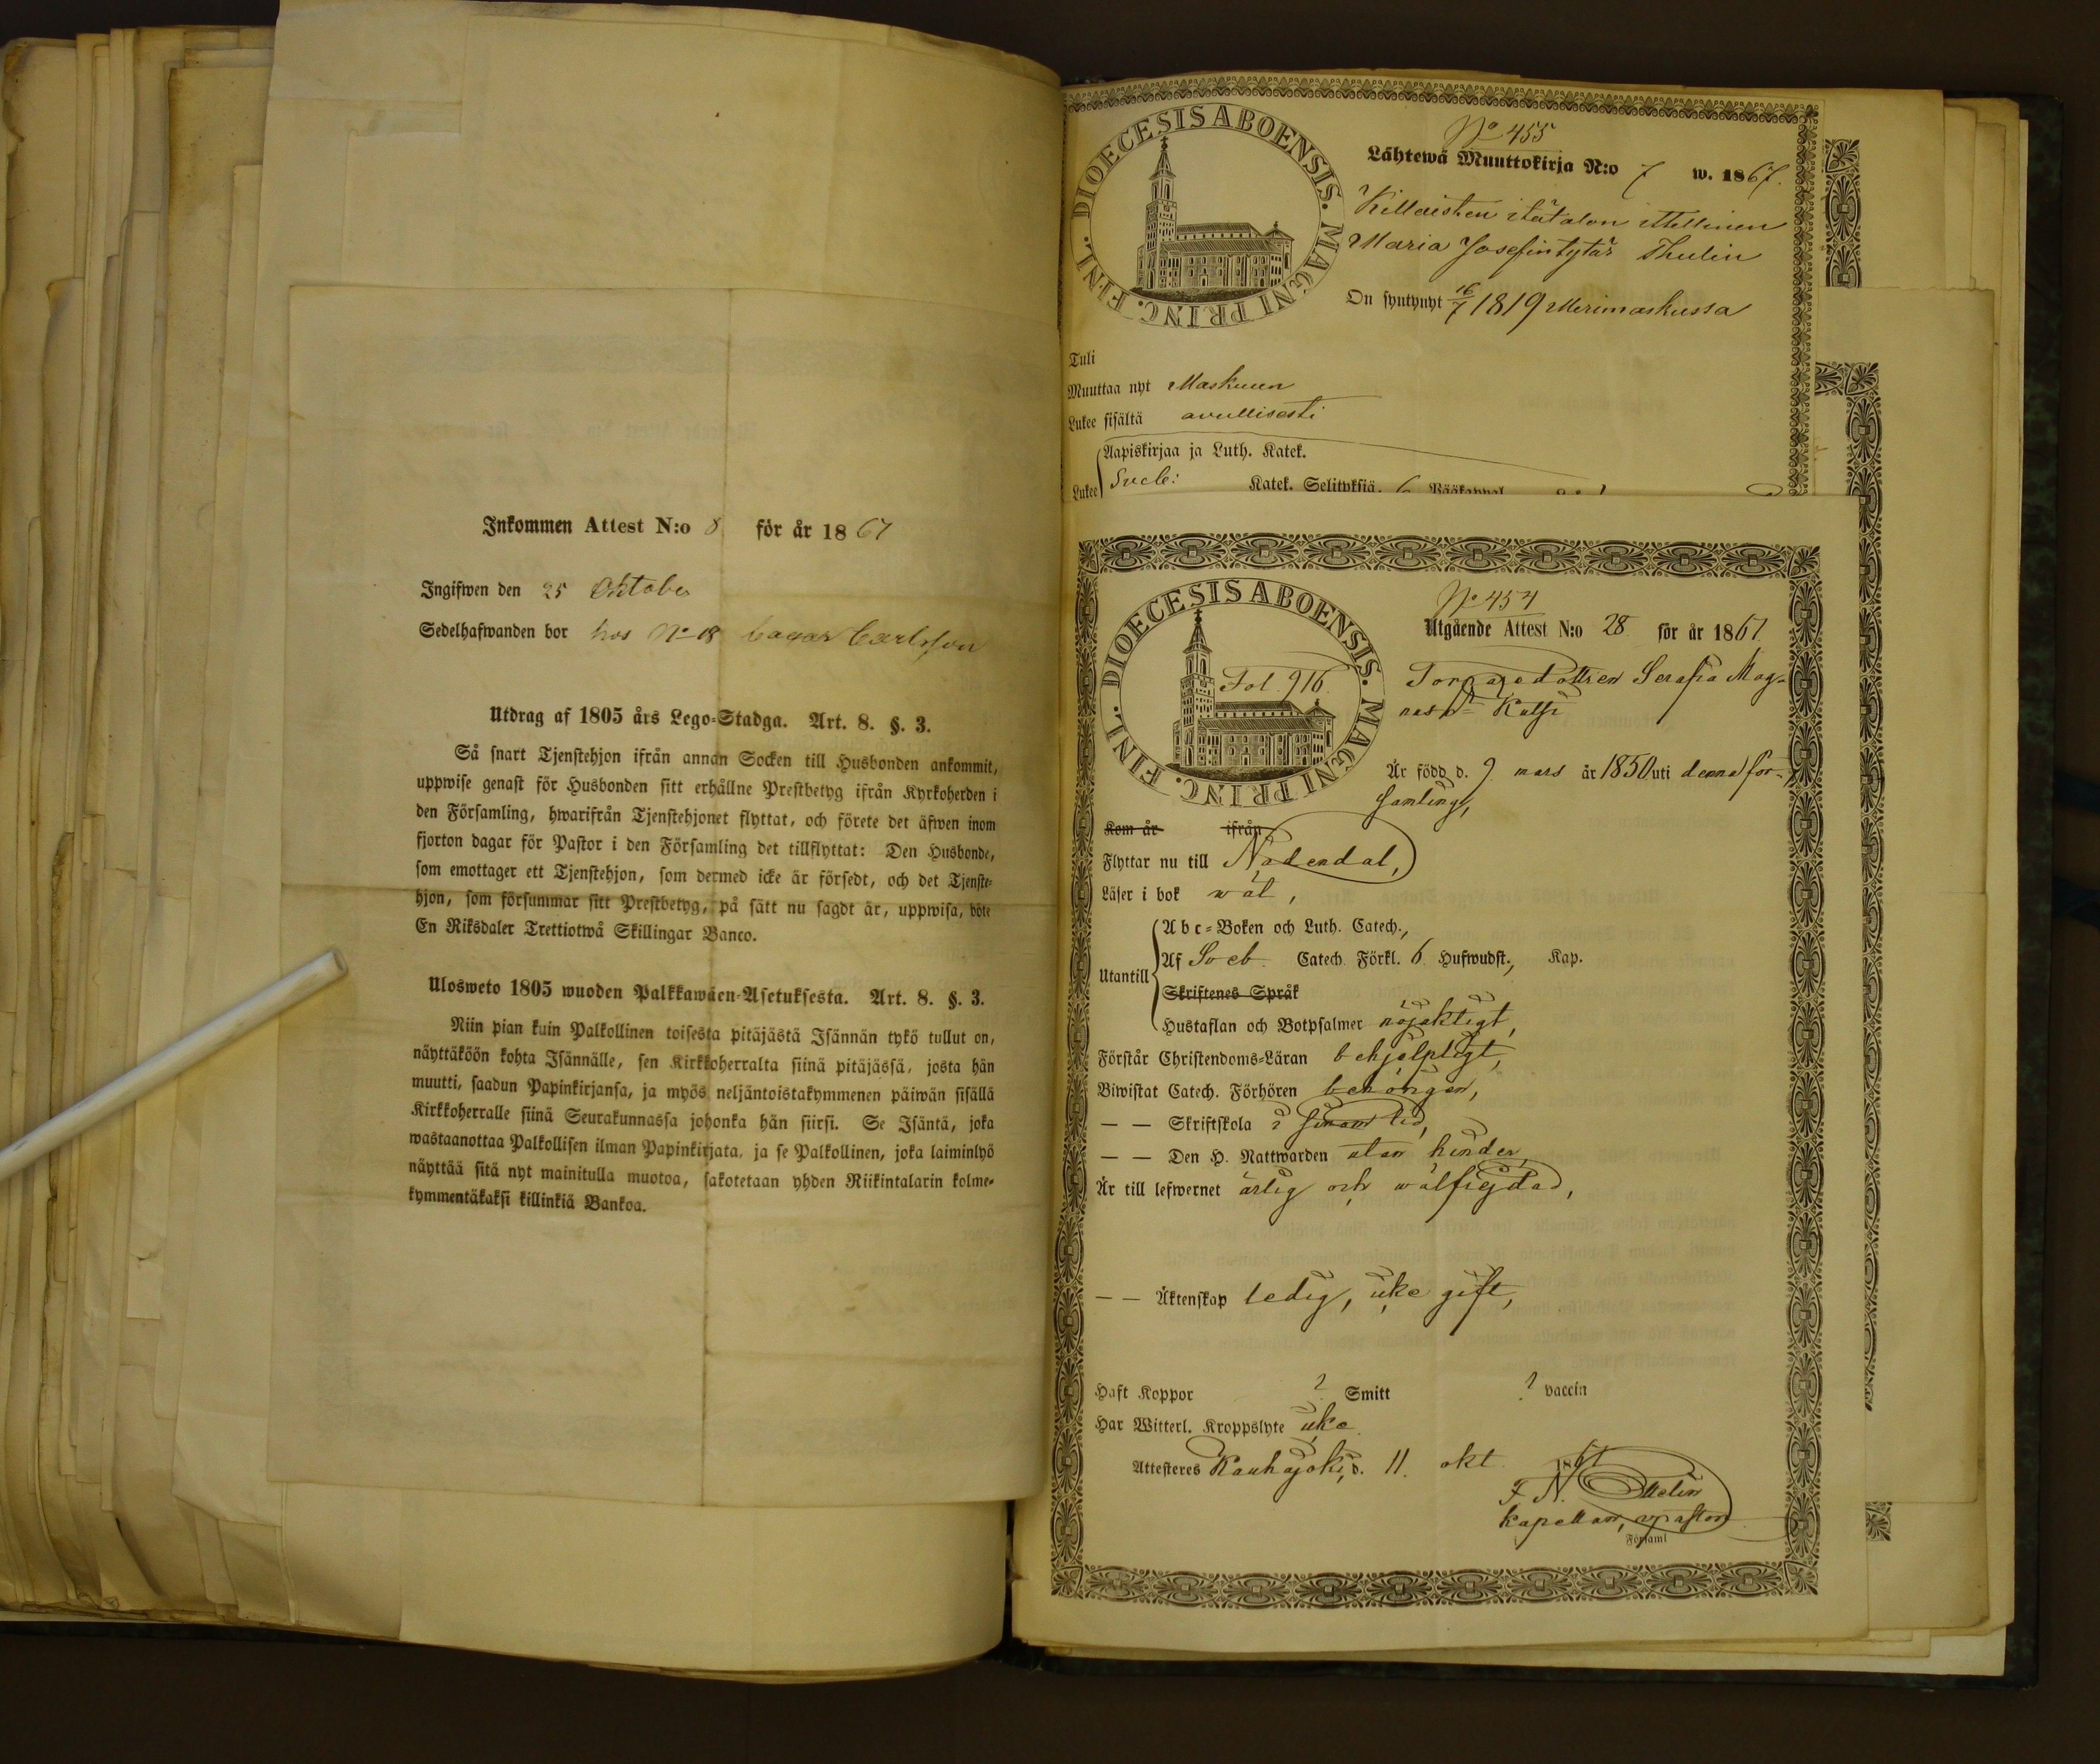 Inkommen Attest N:o 8 för år 1867
Ingifwen den 25 Oktober
Sedelhafwanden bor hos No 18 Carlsson
Utdrag af 1805 års Lego-Stadga. Art. 8. §. 3.
Så snart Tjenstehjon ifrån annan Socken till Husbonden ankommit,
uppwise genast för Husbonden sitt erhållne Prestbetyg ifrån Kyrkoherden i
den Församling, hwarifrån Tjenstehjonet flyttat, och förete det äfwen inom
fjorton dagar för Pastor i den Församling det tillflyttat: Den Husbonde,
som emottager ett Tjenstehjon, som dermed icke är försedt, och det Tjenste-
hjon, som försummar sitt Prestbetyg, på sätt nu sagdt är, uppwisa, böte
En Riksdaler Trettiotwå Skillingar Banco.
Ulosweto 1805 wuoden Palkkawäen-Asetuksesta. Art. 8. §. 3.
Niin pian kuin Palkollinen toisesta pitäjästä Isännän tykö tullut on,
näyttäköön kohta Isännälle, sen Kirkkoherralta siinä pitäjässä, josta hän
muutti, saadun Papinkirjansa, ja myös neljäntoistakymmenen päiwän sisällä
Kirkkoherralle siinä Seurakunnassa johonka hän siirsi. Se Isäntä, joka
wastaanottaa Palkollisen ilman Papinkirjata, ja se Palkollinen, joka laiminlyö
näyttää sitä nyt mainitulla muotoa, sakotetaan yhden Riikintalarin kolme-
kymmentäkaksi killinkiä Bankoa.
DIOECESIS ABOENSIS. MAGNI PRINC. FINL.
No 455
Lähtewä Muuttokirja N:o 7 w. 1867.
Killaisten itätalon ittellinen
Maria Josefintytär Thulin
On syntynyt 16/7 1819 Merimaskussa
Tuli
Muuttaa nyt Maskuun
Lukee sisältä avullisesti
Aapiskirjaa ja Luth. Katek.
Lukee Sveb: Katek. Selityksiä. 6 Pääkappal.
DIOECESIS ABOENSIS. MAGNI PRINC. FINL.
Fol. 916.
No 454
Utgående Attest N:o 28 för år 1867
Torparedottren Serafia Mag-
nasdr
Är född d. 9 mars år 1850 uti denna för-
samling,
Kom år ifrån
Flyttar nu till Nådendal,
Läser i bok wäl,
Abc-Boken och Luth. Catech.,
Utantill Af Sveb. Catech. Förkl. 6 Hufwudst., Kap.
Skriftenes Språk
Hustaflan och Botpsalmer nöjaktigt,
Förstår Christendoms-Läran behjelpligt,
Biwistat Catech. Förhören behörigen,
— — Skriftskola i sinom tid,
— — Den H. Nattwarden utan hinder,
Är till lefwernet ärlig och wälfrejdad,
— — Äktenskap ledig, icke gift,
Haft Koppor ? Smitt ? vaccin
Har Witterl. Kroppslyte icke
Attesteras Kauhajoki, d. 11. okt. 1867
F. N.
Kapellan, v pastor
Församl